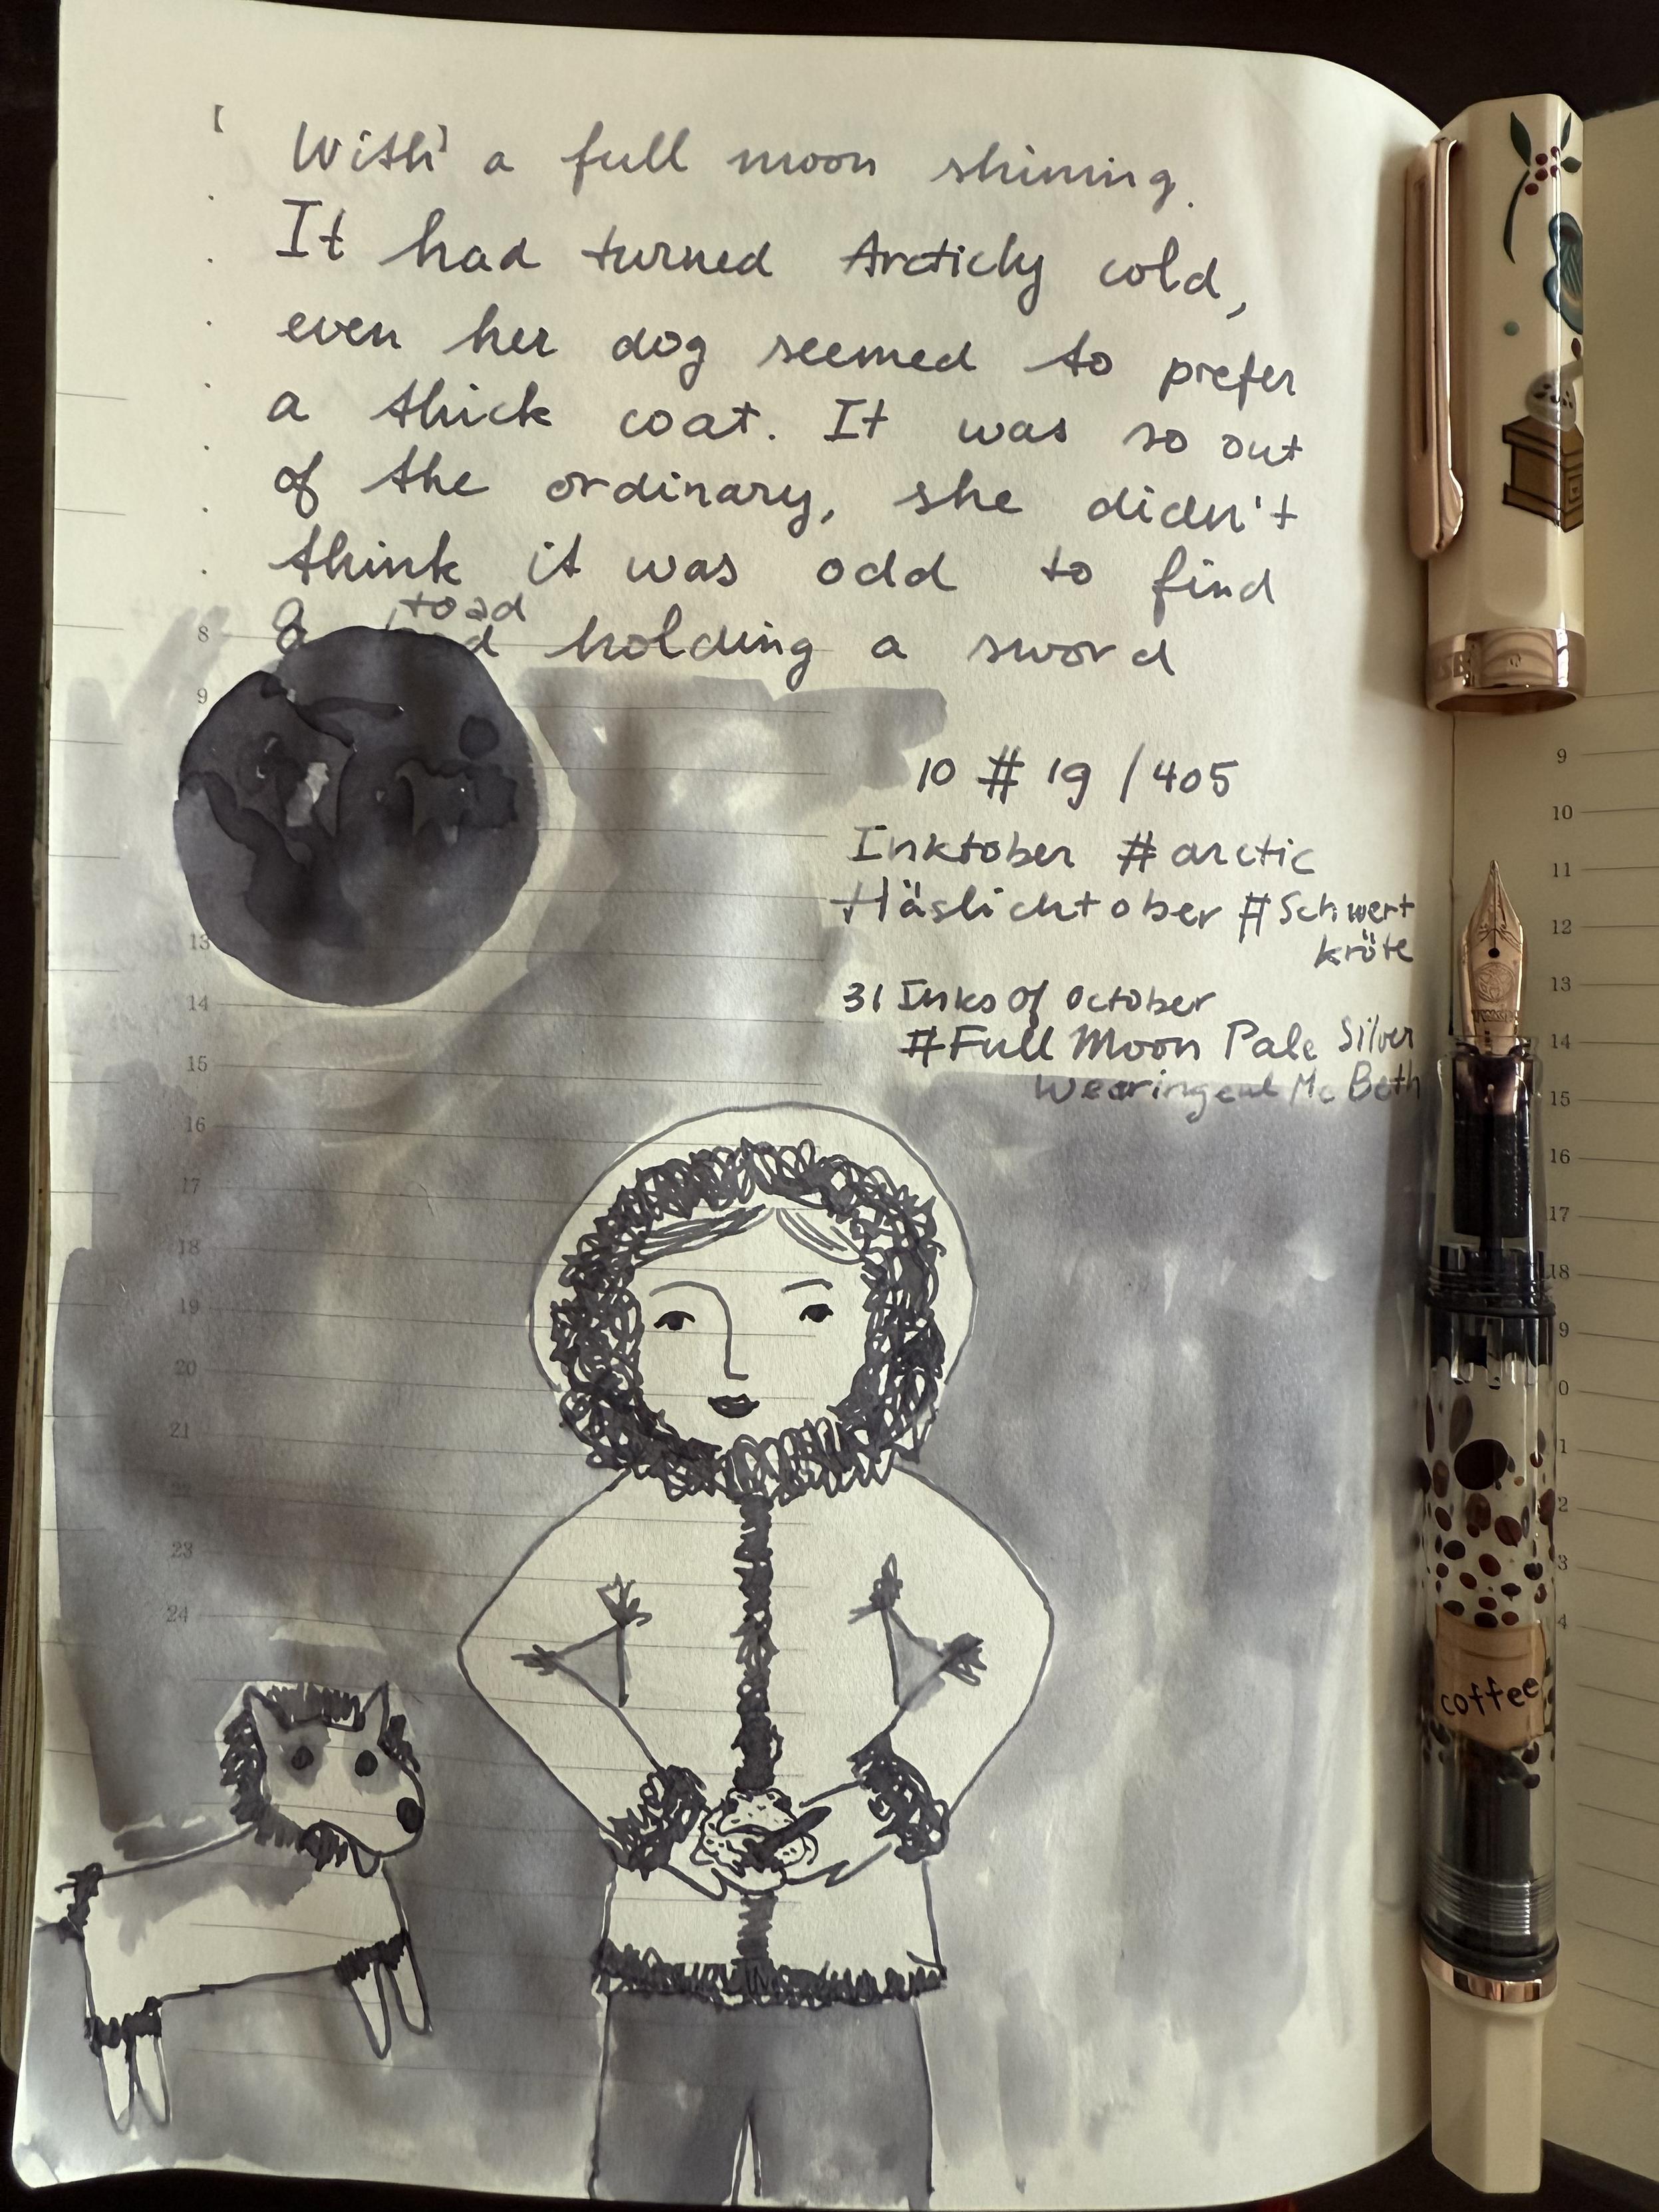 With a full moon shining.
It had turned Arcticly cold,
even her dog seemed to prefer
a thick coat. It was so out
of the ordinary, she didn't
think it was odd to find
a toad holding a sword
10 # 19 / 405
Inktober # arctic
Häslichtober # Schwert
kröte
31 Inks Of October
#Full Moon Pale Silver
Wearingeul Mc Beth
8
9
13
14
15
16
17
18
19
20
21
22
23
24
coffee
9
10
11
12
13
14
15
16
17
18
9
0
1
2
3
4